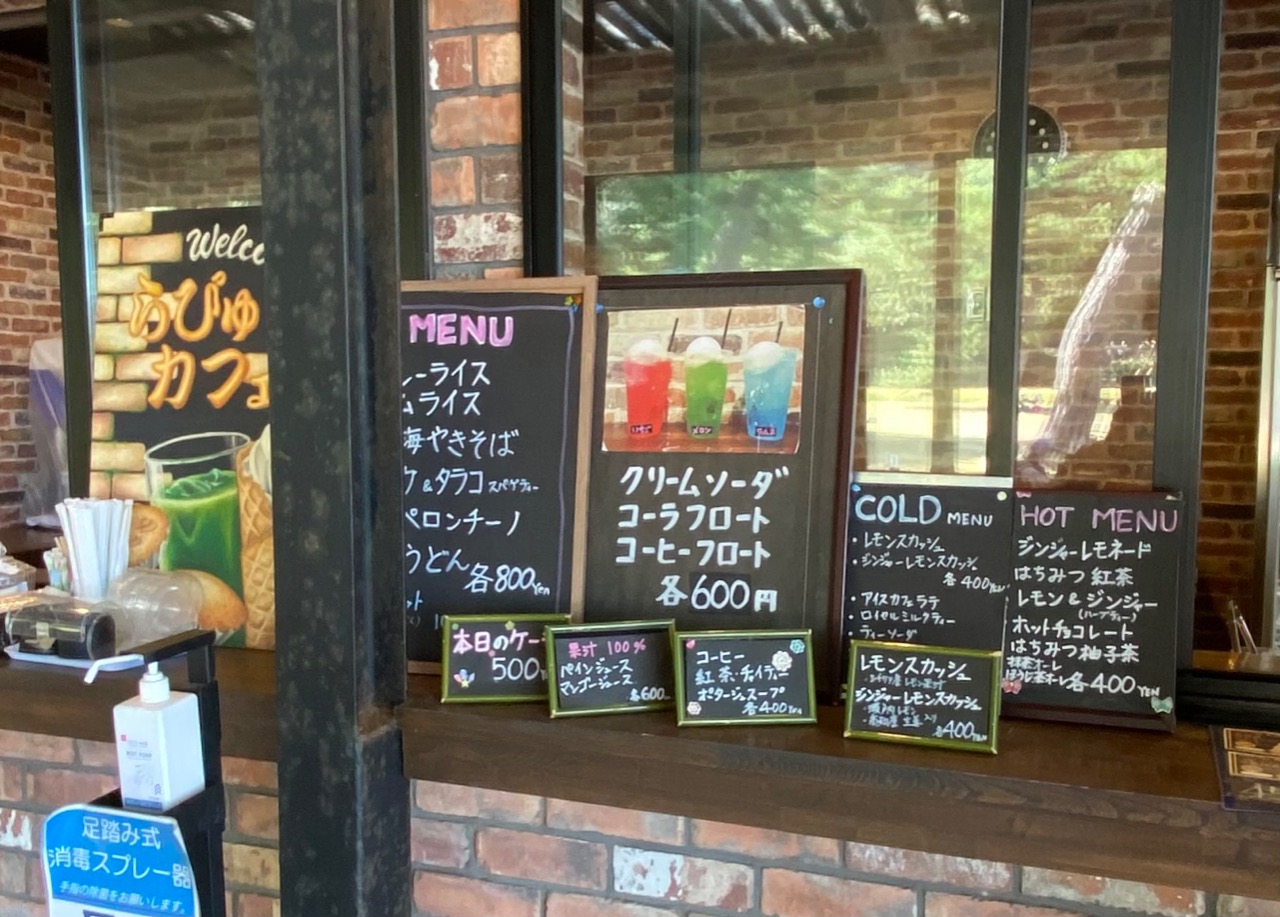 Welco
らびゅ
カフェ
MENU
ーライス
ムライス
海やきそば
ケ&タラコ スパゲティー
ペロンチーノ
うどん
各800Yen
いちご
メロン
クリームソーダ
コーラフロート
コーヒーフロート
各600円
COLD MENU
・レモンスカッシュ
・ジンジャーレモンスカッシュ
各400YEN
・アイスカフェラテ
・ロイヤルミルクティー
・ティーソーダ
HOT MENU
ジンジャーレモネード
はちみつ紅茶
レモン&ジンジャー
(ハーブティー)
ホットチョコレート
はちみつ柚子茶
抹茶オーレ
ほうじ茶オーレ 各400YEN
本日のケー
500
果汁100%
パインジュース
マンゴージュース
各600
コーヒー
紅茶・チャイティー
ポタージュスープ
各400Yen
レモンスカッシュ
ジンジャーレモンスカッシュ
・瀬戸内レモン
各400YEN
足踏み式
消毒スプレー器
手指の除菌をお願いします。